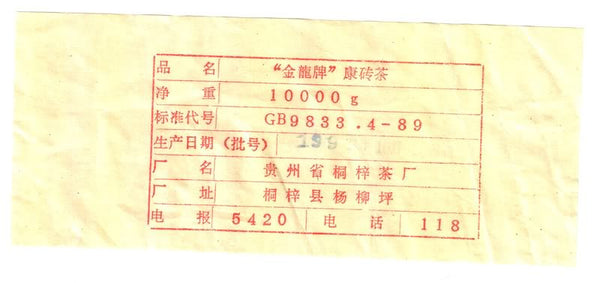 品名 “金龍牌”康砖茶
净重 10000g
标准代号 GB9833.4-89
生产日期(批号) 199
厂名 贵州省桐梓茶厂
厂址 桐梓县杨柳坪
电报 5420 电话 118